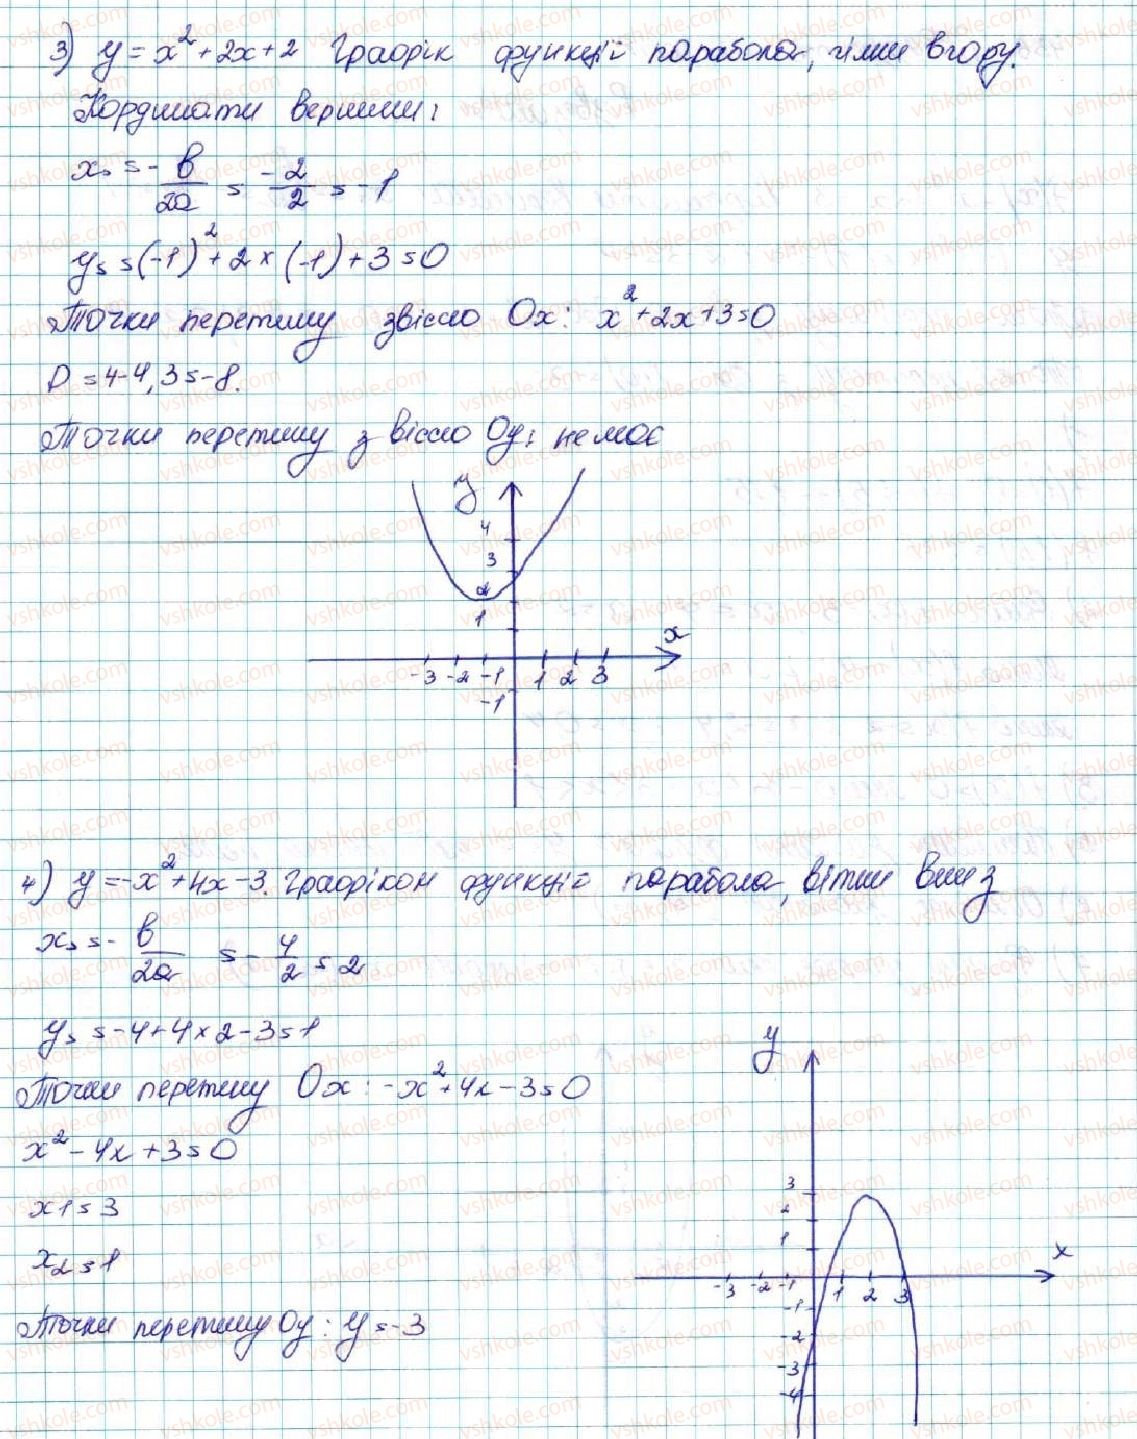 3) y = x² + 2x + 2 Графік функції парабола, гілки вгору.
Кординати вершини:
x₀ = - b/2a = -2/2 = -1
y₀ = (-1)² + 2 × (-1) + 3 = 0
Точки перетину звіссю Ox: x² + 2x + 3 = 0
D = 4-4,3 = -8.
Точки перетину з віссю Oy: немає
y
4
3
2
1
x
-3 -2 -1 1 2 3
-1
4) y = -x² + 4x - 3. Графікон функціє парабола, вітки вниз
x₀ = - b/2a = - 4/2 = 2
y₀ = -4 + 4 × 2 - 3 = 1
y
Точки перетину Ox: -x² + 4x - 3 = 0
x² - 4x + 3 = 0
x1 = 3
x2 = 1
3
2
1
x
-3 -2 -1 1 2 3
-1
-2
-3
-4
Точки перетину Oy: y = -3
vshkole.com